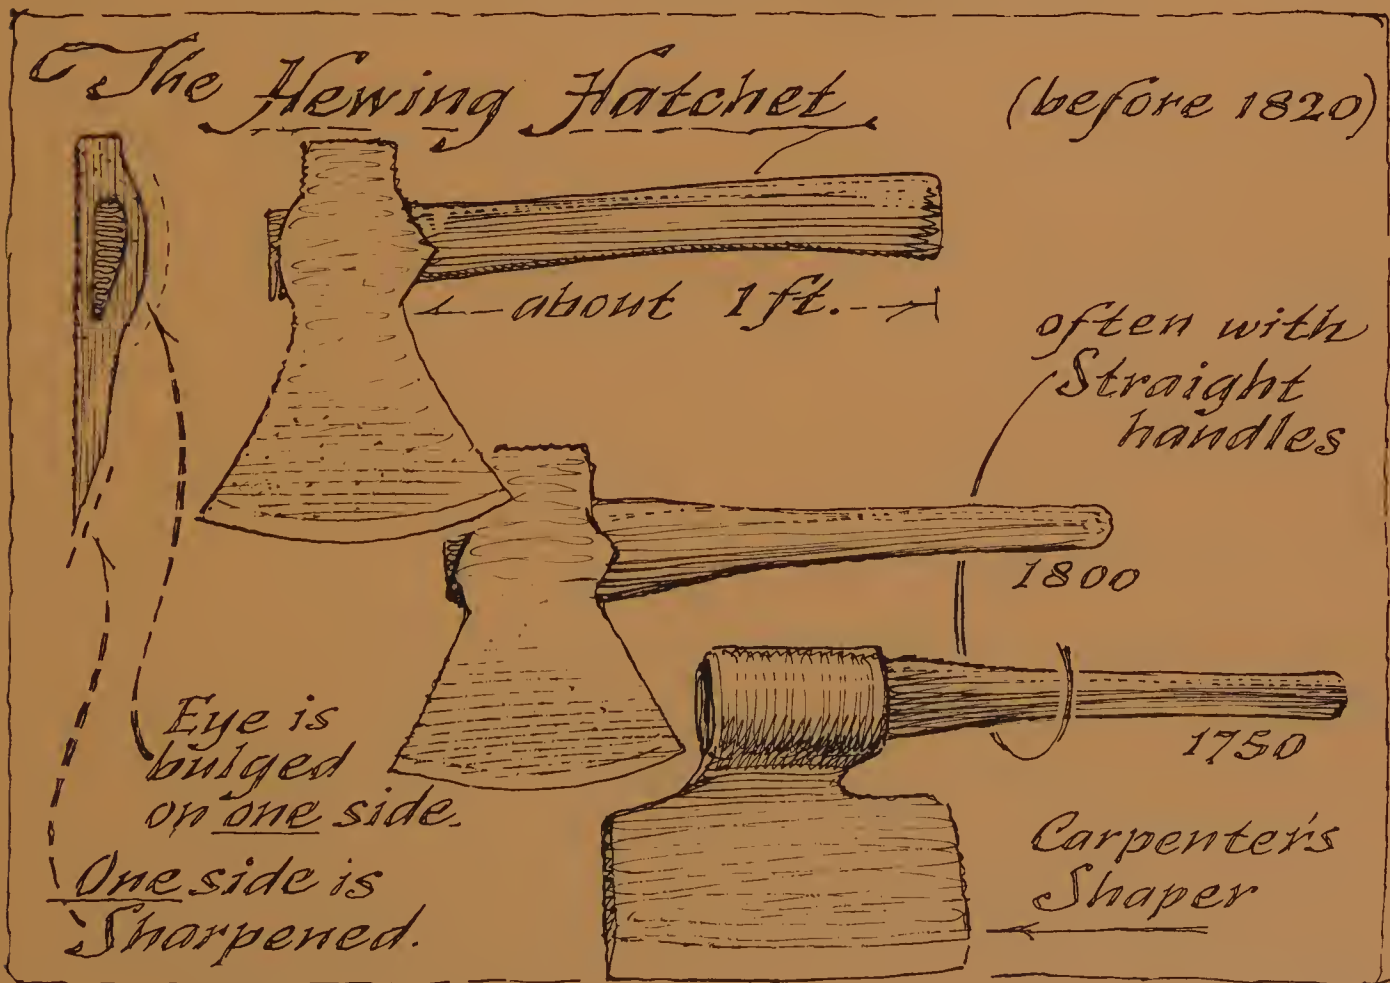 The Hewing Hatchet (before 1820)
about 1ft.
often with
Straight
handles
1800
1750
Eye is
bulged
on one side.
One side is
Sharpened.
Carpenter's
Shaper